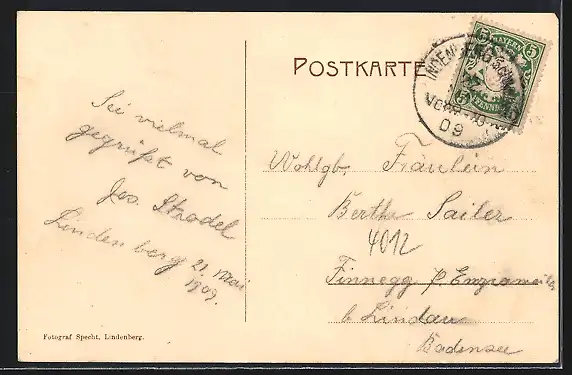 POSTKARTE
BAYERN
5
5
PFENNIG
09
Sei vielmal
gegrüßt von
Jos. Strodel
Lindenberg 21. Mai
1909.
Wohlgb. Fräulein
Bertha Sailer
4012
p.
b. Lindau
Bodensee
Fotograf Specht, Lindenberg.